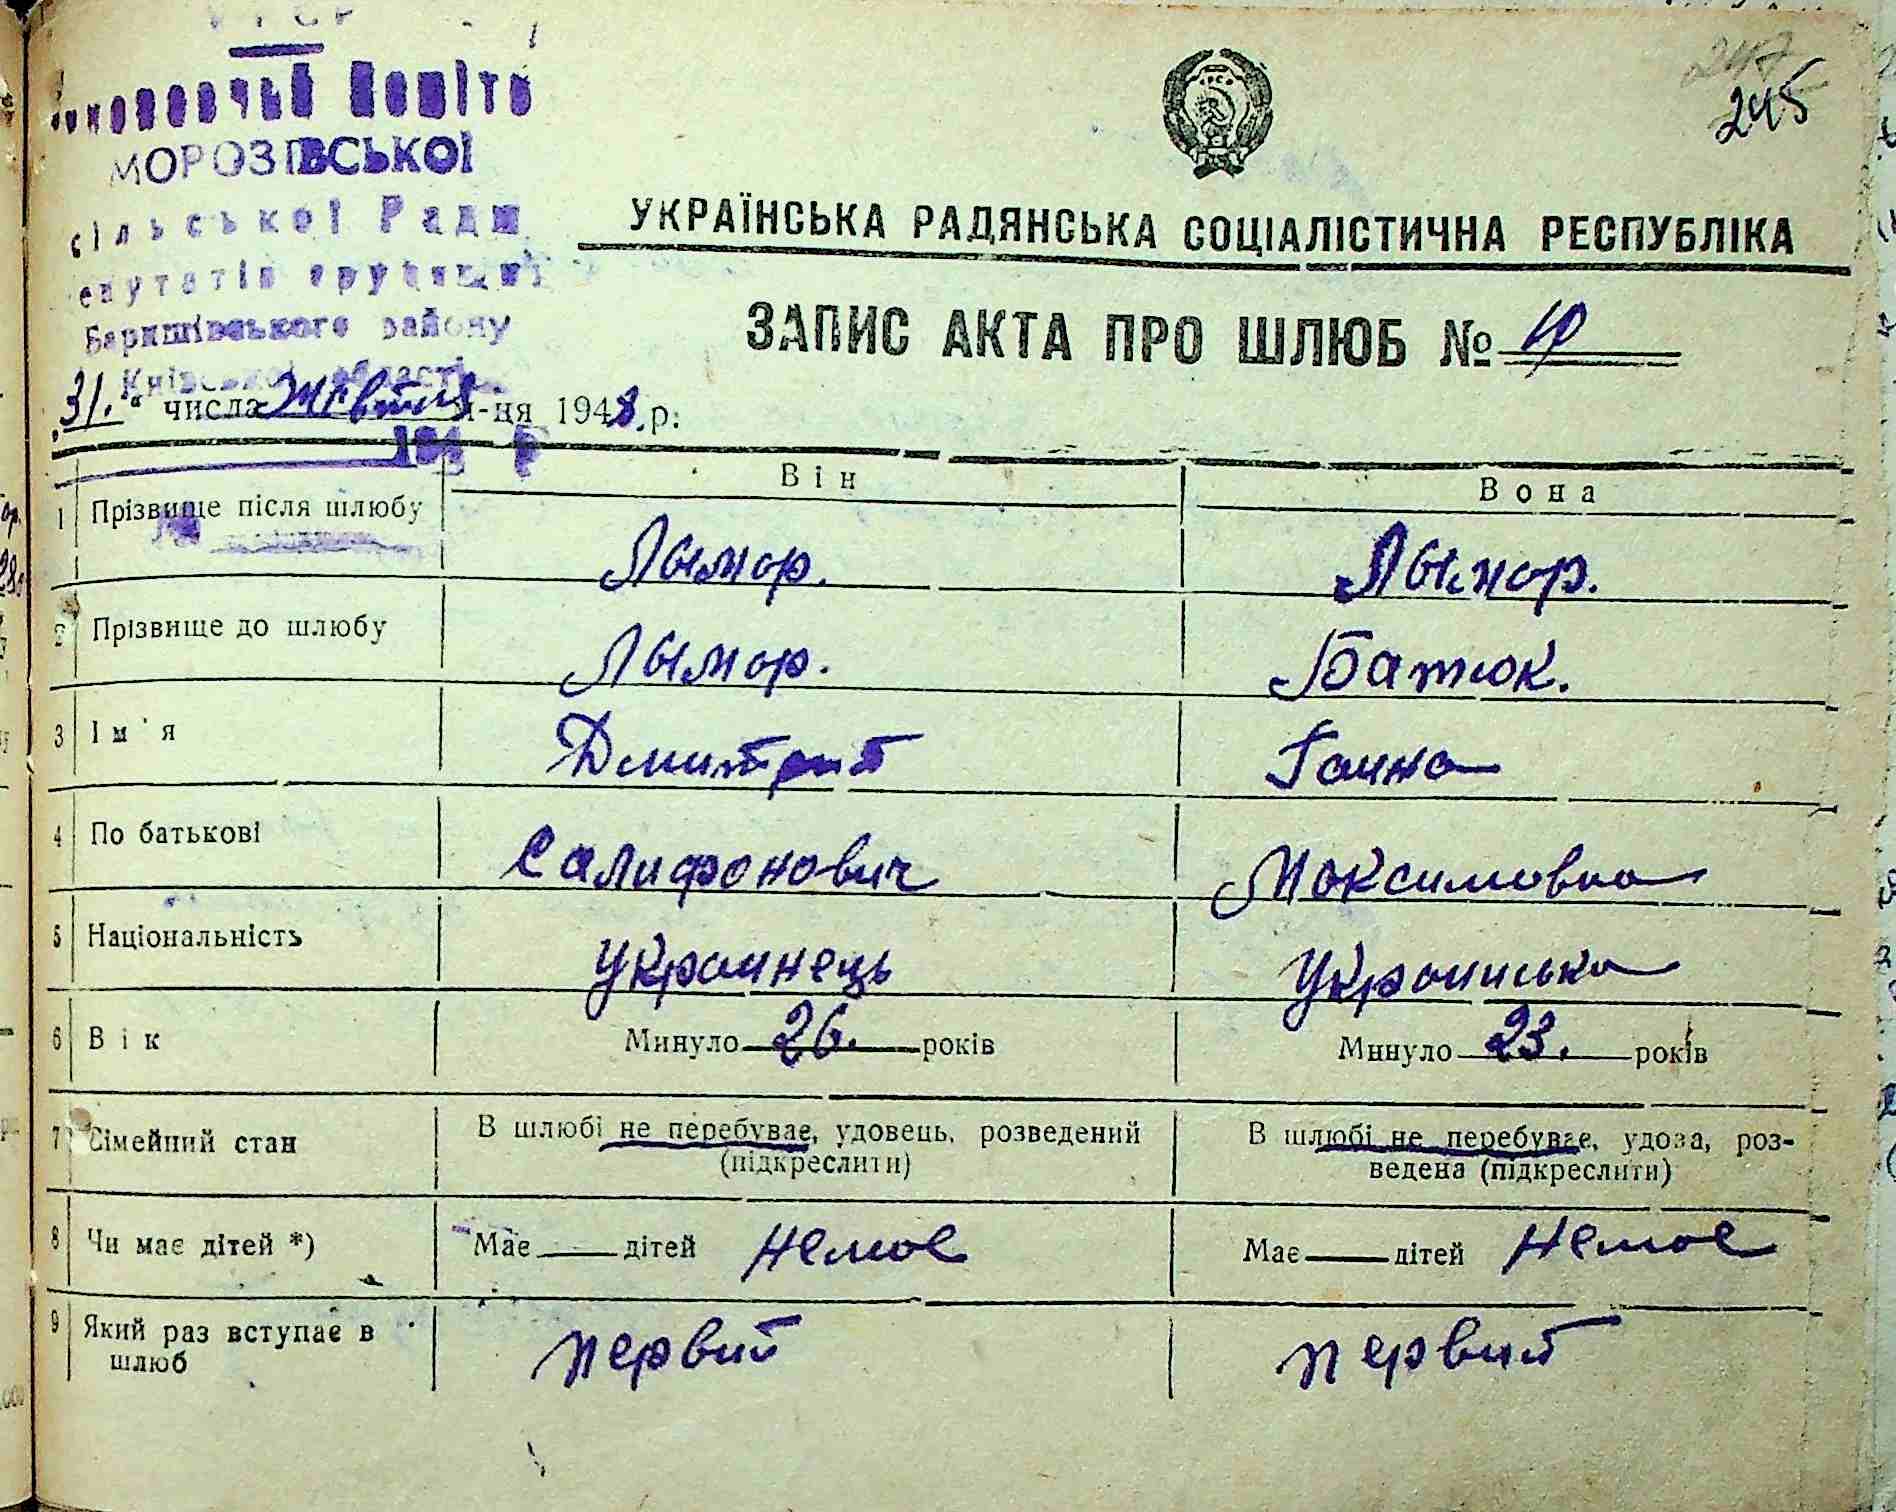 245
МОРОЗІВСЬКОЇ
сільської Ради
Баришівського району
УКРАЇНСЬКА РАДЯНСЬКА СОЦІАЛІСТИЧНА РЕСПУБЛІКА
ЗАПИС АКТА ПРО ШЛЮБ №
31. числа Жевтня м-ця 1948.р.
Він Вона
1 Прізвище після шлюбу Лымар. Лымар.
2 Прізвище до шлюбу Лымар. Батюк.
3 Ім'я Дмитрий Ганна
4 По батькові Салифонович Максимовна
5 Національність Украинець Украинська
6 Вік Минуло 26. років Минуло 23. років
7 Сімейний стан В шлюбі не перебуває, удовець, розведений В шлюбі не перебуває, удова, роз-
(підкреслити) ведена (підкреслити)
8 Чи має дітей *) Має дітей немає Має дітей немає
9 Який раз вступає в первий первий
шлюб